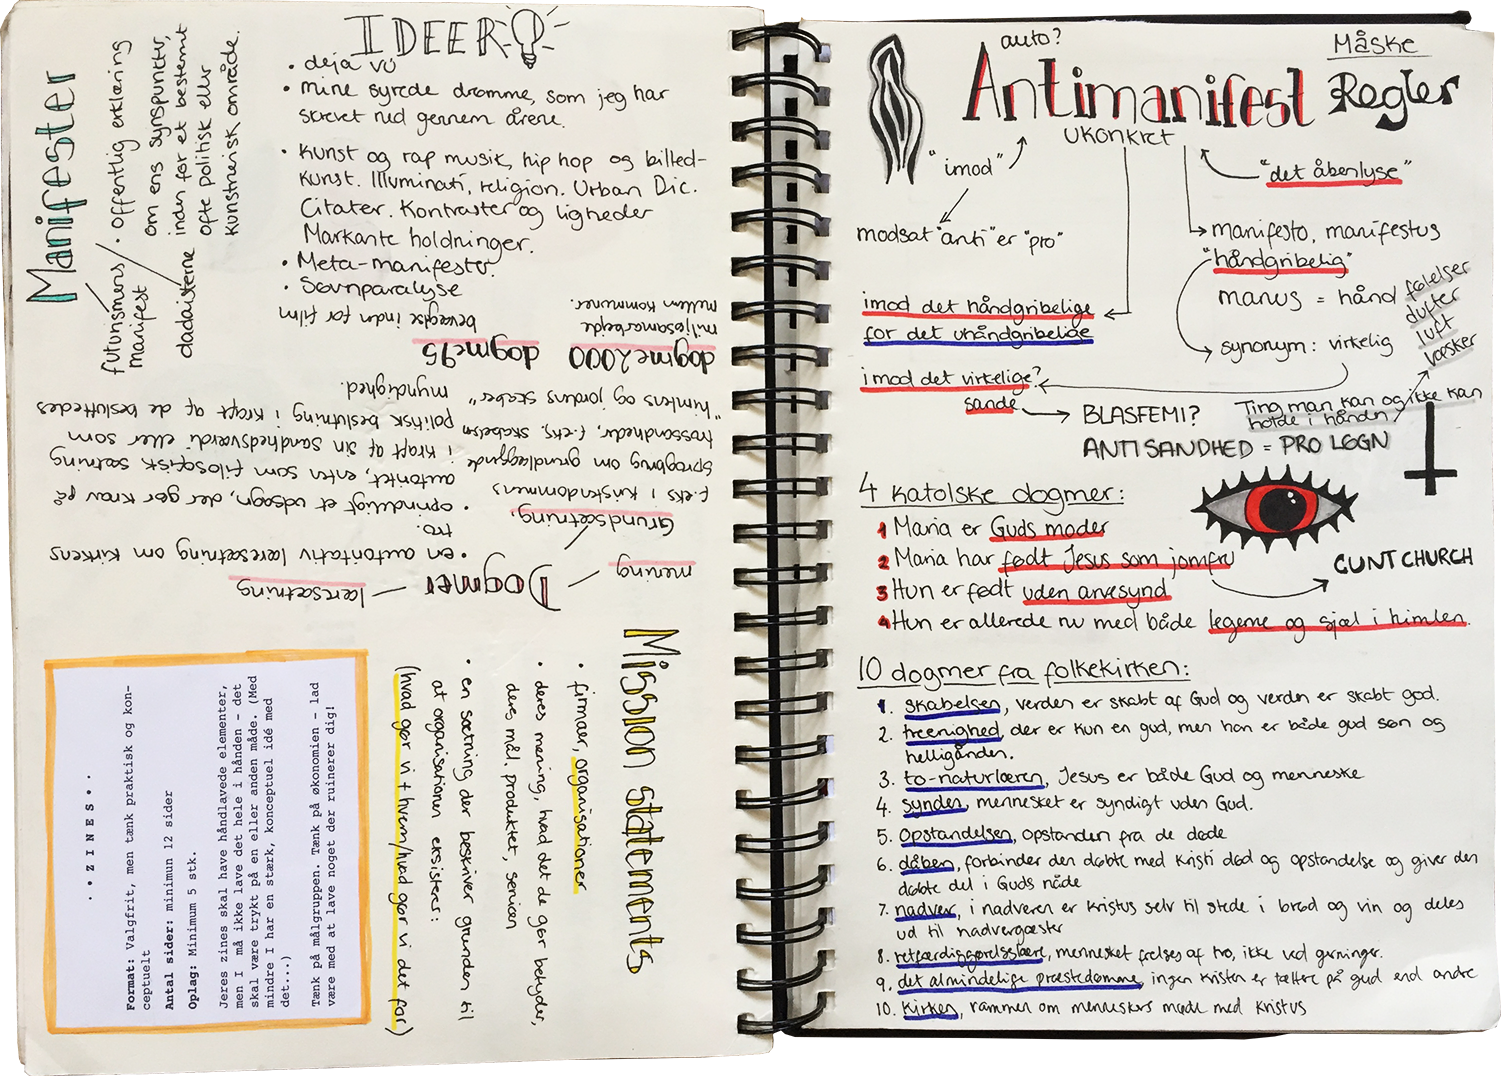 IDEER
• deja vu
• mine syrede drømme, som jeg har
skrevet ned gennem årene.
• Kunst og rap musik, hip hop og billed-
kunst. Illuminati, religion. Urban Dic.
Citater. Kontraster og ligheder
Markante holdninger.
• Meta-manifester.
• Søvnparalyse
Manifester
• offentlig erklæring
om ens synspunkter,
inden for et bestemt
ofte politisk eller
kunstnerisk område.
futurismens
manifest
dadaisterne
dogme 95
bevægelse inden for film
dogme 2000
miljøsamarbejde
mellem kommuner.
Dogmer
læresætning
mening
Grundsætning,
• en autoritativ læresætning om kirkens
tro.
• oprindeligt et udsagn, der gør krav på
autoritet, enten som filosofisk sætning
i kraft af sin sandhedsværdi eller som
politisk beslutning i kraft af de besluttedes
myndighed.
f.eks i kristendommens
sprogbrug om grundlæggende
trossandheder, f.eks. skabelsen
"himlens og jordens skaber"
Mission statements
• firmaer, organisationer
• deres mening, hvad det de gør betyder,
deres mål, produktet, servicen
• en sætning der beskriver grunden til
at organisationen eksisterer:
(hvad gør vi + hvem/hvad gør vi det for)
• • Z I N E S • •
Format: Valgfrit, men tænk praktisk og kon-
ceptuelt
Antal sider: minimum 12 sider
Oplag: Minimum 5 stk.
Jeres zines skal have håndlavede elementer,
men I må ikke lave det hele i hånden - det
skal være trykt på en eller anden måde. (Med
mindre I har en stærk, konceptuel idé med
det...)
Tænk på målgruppen. Tænk på økonomien - lad
være med at lave noget der ruinerer dig!
auto?
Måske
Antimanifest Regler
ukonkret
"imod"
"det åbenlyse"
modsat "anti" er "pro"
manifesto, manifestus
"håndgribelig"
manus = hånd
følelser
dufter
luft
væsker
imod det håndgribelige
for det uhåndgribelige
synonym: virkelig
imod det virkelige?
sande
BLASFEMI?
Ting man kan og ikke kan
holde i hånden
ANTISANDHED = PRO LØGN
4 katolske dogmer:
1 Maria er Guds moder
2 Maria har født Jesus som jomfru
3 Hun er født uden arvesynd
4 Hun er allerede nu med både legeme og sjæl i himlen.
CUNT CHURCH
10 dogmer fra folkekirken:
1. skabelsen, verden er skabt af Gud og verden er skabt god.
2. treenighed, der er kun en gud, men han er både gud søn og
helligånden.
3. to-naturlæren, Jesus er både Gud og menneske
4. synden, mennesket er syndigt uden Gud.
5. Opstandelsen, opstanden fra de døde
6. dåben, forbinder den døbte med Kristi død og opstandelse og giver den
døbte del i Guds nåde
7. nadver, i nadveren er Kristus selv til stede i brød og vin og deles
ud til nadvergæster
8. retfærdiggørelseslære, mennesket frelses af tro, ikke ved gerninger.
9. det almindelige præstedømme, ingen kristen er tættere på gud end andre
10. Kirken, rammen om menneskers møde med Kristus